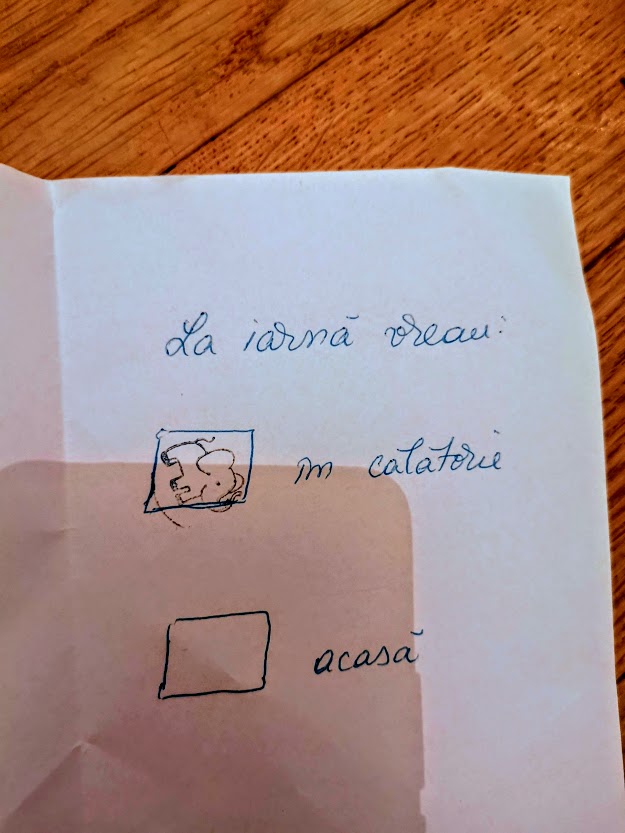 La iarnă vreau:
în calatorie
acasă